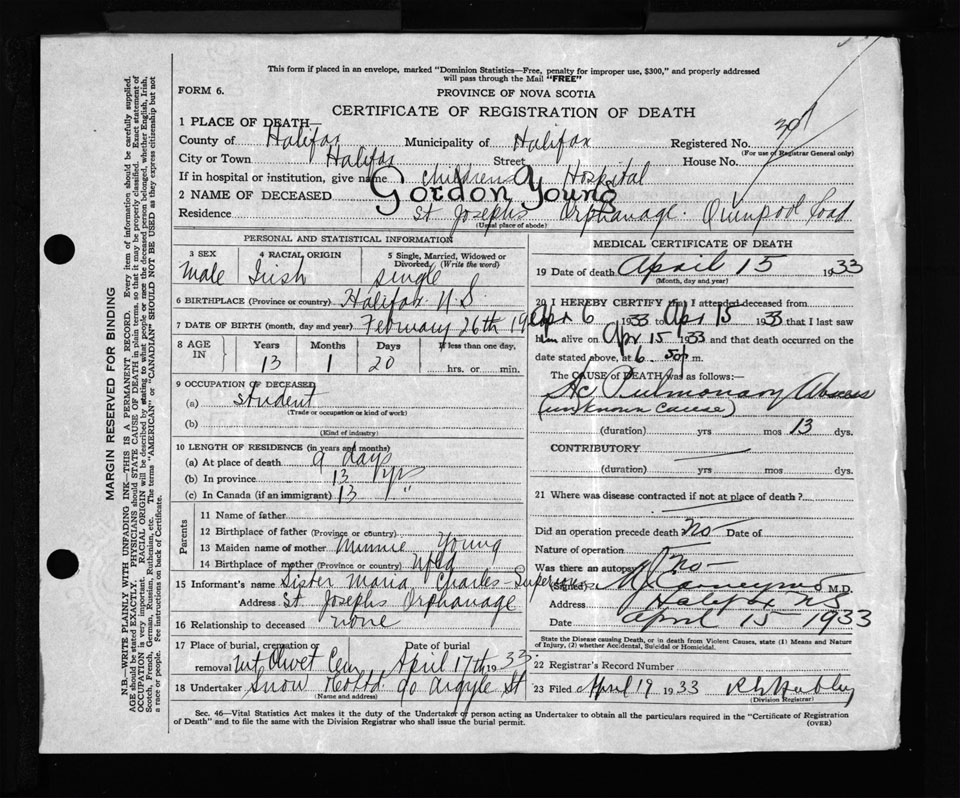 This form if placed in an envelope, marked "Dominion Statistics—Free, penalty for improper use, $300," and properly addressed
will pass through the Mail "FREE"
FORM 6.
PROVINCE OF NOVA SCOTIA
CERTIFICATE OF REGISTRATION OF DEATH
1 PLACE OF DEATH—
County of Halifax Municipality of Halifax Registered No.
(For use of Registrar General only)
City or Town Halifax Street House No.
If in hospital or institution, give name Childrens Hospital
2 NAME OF DECEASED Gordon Young
Residence St Josephs Orphanage. Quinpool Road
(Usual place of abode)
PERSONAL AND STATISTICAL INFORMATION
3 SEX 4 RACIAL ORIGIN 5 Single, Married, Widowed or
Divorced (Write the word)
Male Irish single
6 BIRTHPLACE (Province or country) Halifax N.S.
7 DATE OF BIRTH (month, day and year) February 26th 19
8 AGE IN Years Months Days If less than one day,
13 1 20 hrs. or min.
9 OCCUPATION OF DECEASED
(a) Student
(Trade or occupation or kind of work)
(b)
(Kind of industry)
10 LENGTH OF RESIDENCE (in years and months)
(a) At place of death 9 days
(b) In province 13 yrs
(c) In Canada (if an immigrant) 13 "
Parents
11 Name of father
12 Birthplace of father (Province or country)
13 Maiden name of mother Minnie Young
14 Birthplace of mother (Province or country) Nfld
15 Informant's name Sister Maria Charles - Superior
Address St Josephs Orphanage
16 Relationship to deceased none
17 Place of burial, cremation or Date of burial
removal Mt Olivet Cem April 17th 1933
18 Undertaker Snow & Co Ltd 90 Argyle St
(Name and address)
MEDICAL CERTIFICATE OF DEATH
19 Date of death April 15 1933
(Month, day and year)
20 I HEREBY CERTIFY that I attended deceased from
Apr 6 1933 to Apr 15 1933 that I last saw
him alive on Apr 15 1933 and that death occurred on the
date stated above, at 6.50 p m.
The CAUSE OF DEATH was as follows:—
Ac Pulmonary Abscess
(unknown cause)
(duration) yrs mos 13 dys.
CONTRIBUTORY
(duration) yrs mos dys.
21 Where was disease contracted if not at place of death?
Did an operation precede death No Date of
Nature of operation
Was there an autopsy? No
(Signed) M.D.
Address Halifax N.S.
Date April 15 1933
State the Disease causing Death, or in death from Violent Causes, state (1) Means and Nature
of Injury, (2) whether Accidental, Suicidal or Homicidal.
22 Registrar's Record Number
23 Filed April 19 1933
(Division Registrar)
Sec. 46—Vital Statistics Act makes it the duty of the Undertaker or person acting as Undertaker to obtain all the particulars required in the "Certificate of Registration
of Death" and to file the same with the Division Registrar who shall issue the burial permit.
(OVER)
MARGIN RESERVED FOR BINDING
N.B.—WRITE PLAINLY WITH UNFADING INK—THIS IS A PERMANENT RECORD. Every item of information should be carefully supplied.
AGE should be stated EXACTLY. PHYSICIANS should STATE CAUSE OF DEATH in plain terms, so that it may be properly classified. Exact statement of
OCCUPATION is very important. RACIAL ORIGIN will be described by stating to what people or race the deceased person belonged, whether English, Irish,
Scotch, French, German, Russian, Ruthenian, etc. The terms "AMERICAN" or "CANADIAN" SHOULD NOT BE USED as they express citizenship but not
a race or people. See instructions on back of Certificate.